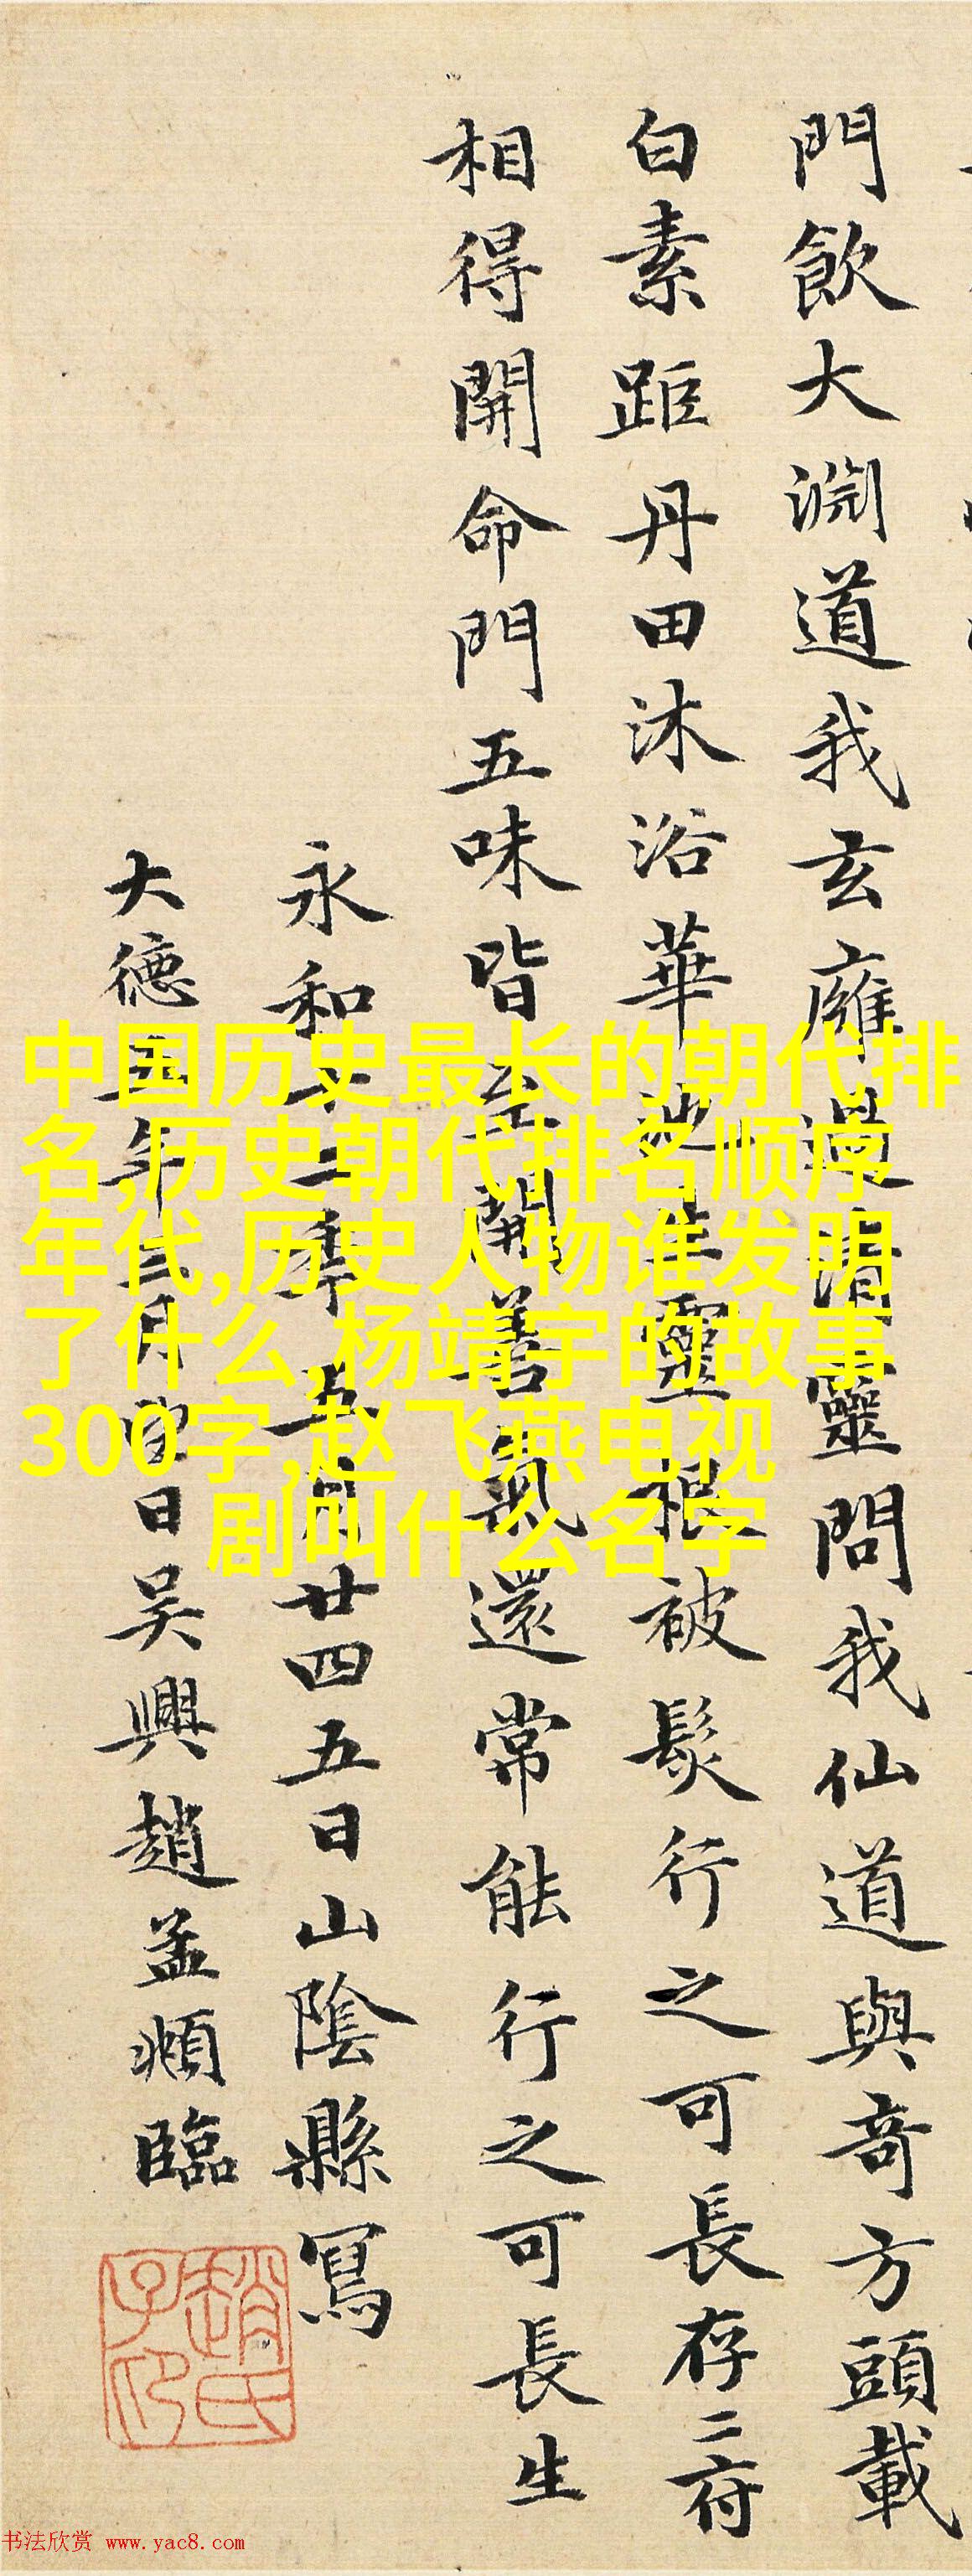 門飲大淵道我玄廱過清靈問我仙道與奇方頭載
白素距丹田沐浴華池生靈根被髮行之可長存二府
相得開命門五味皆至開善氣還常能行之可長生
永和十二年五月廿四五日山陰縣寫
大德五年二月 日吴興趙孟頫臨
趙氏子印
中国历史最长的朝代排
名,历史朝代排名顺序
年代,历史人物谁发明
了什么,杨靖宇的故事
300字,赵飞燕电视
剧叫什么名字
书法欣赏 www.yac8.com